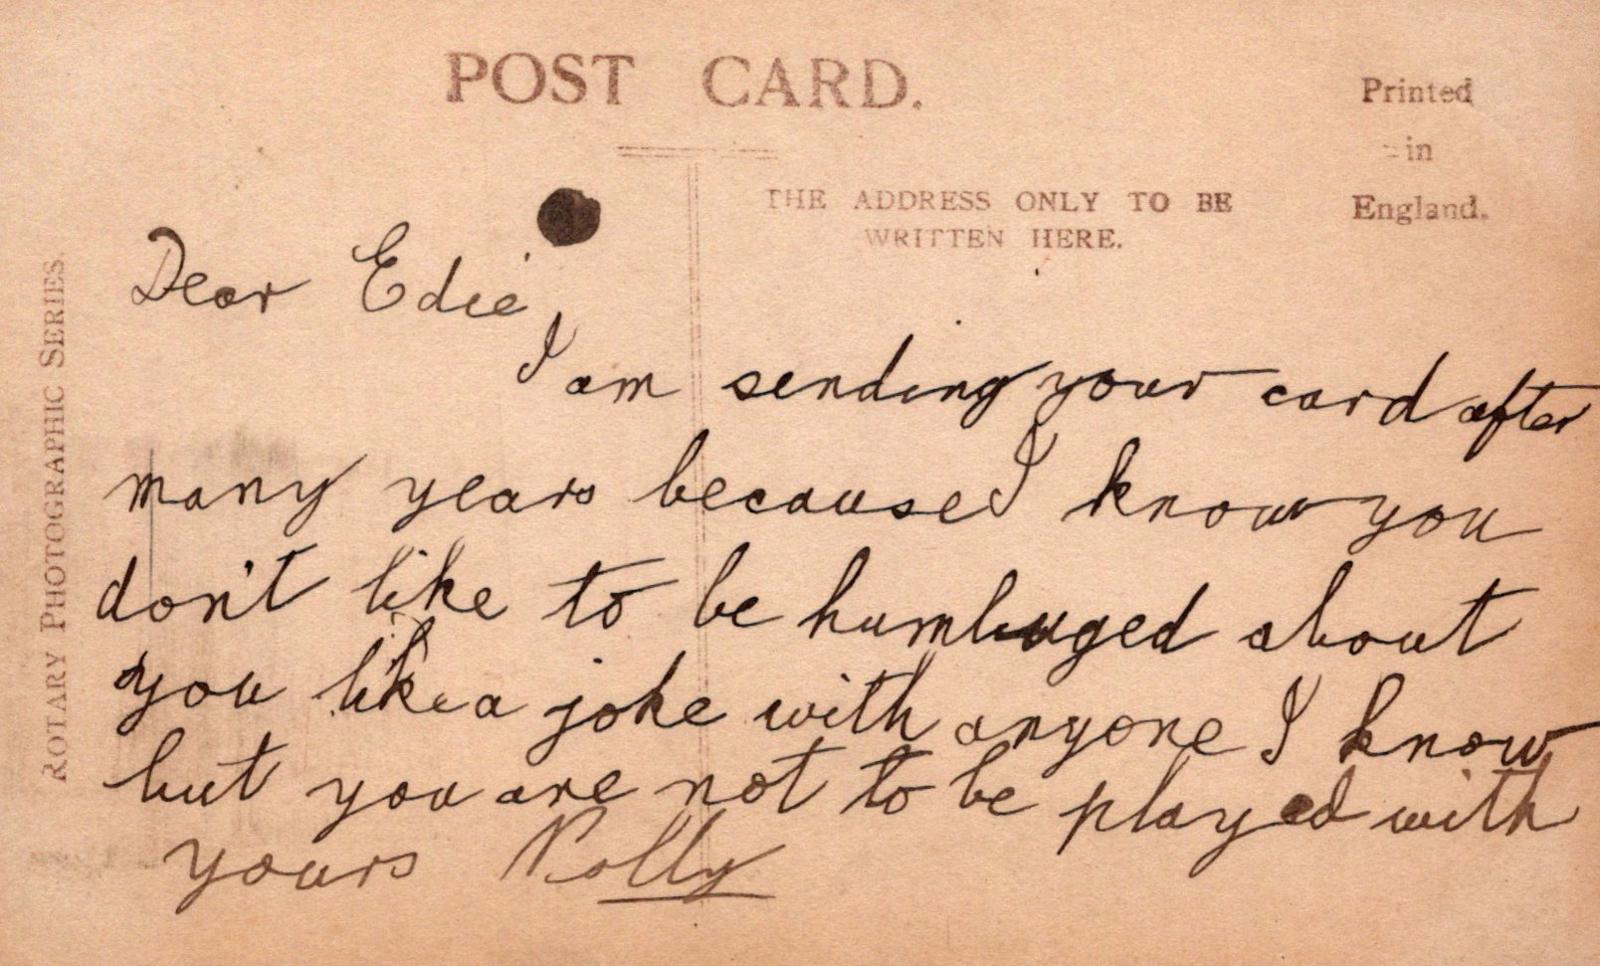 POST CARD.
Printed
in
England.
THE ADDRESS ONLY TO BE
WRITTEN HERE.
ROTARY PHOTOGRAPHIC SERIES.
Dear Edie,
I am sending your card after
many years because I know you
don't like to be humbuged about
you like a joke with anyone I know
but you are not to be played with
yours Polly